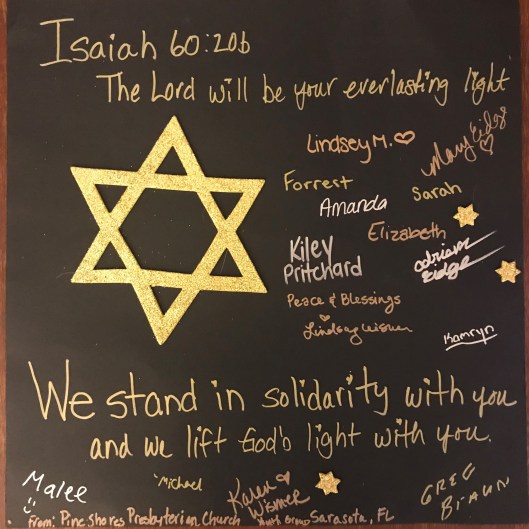 Isaiah 60:20b
The Lord will be your everlasting light
Lindsey M.
Mary Eidge
Forrest
Sarah
Amanda
Elizabeth
Kiley
Pritchard
Adriane
Eidge
Peace & Blessings
Lindsay Wismer
Kamryn
We stand in solidarity with you
and we lift God's light with you.
Malee
Michael
Karen
Wismer
GREG
BRAUN
From: Pine Shores Presbyterian Church Youth Group Sarasota, FL